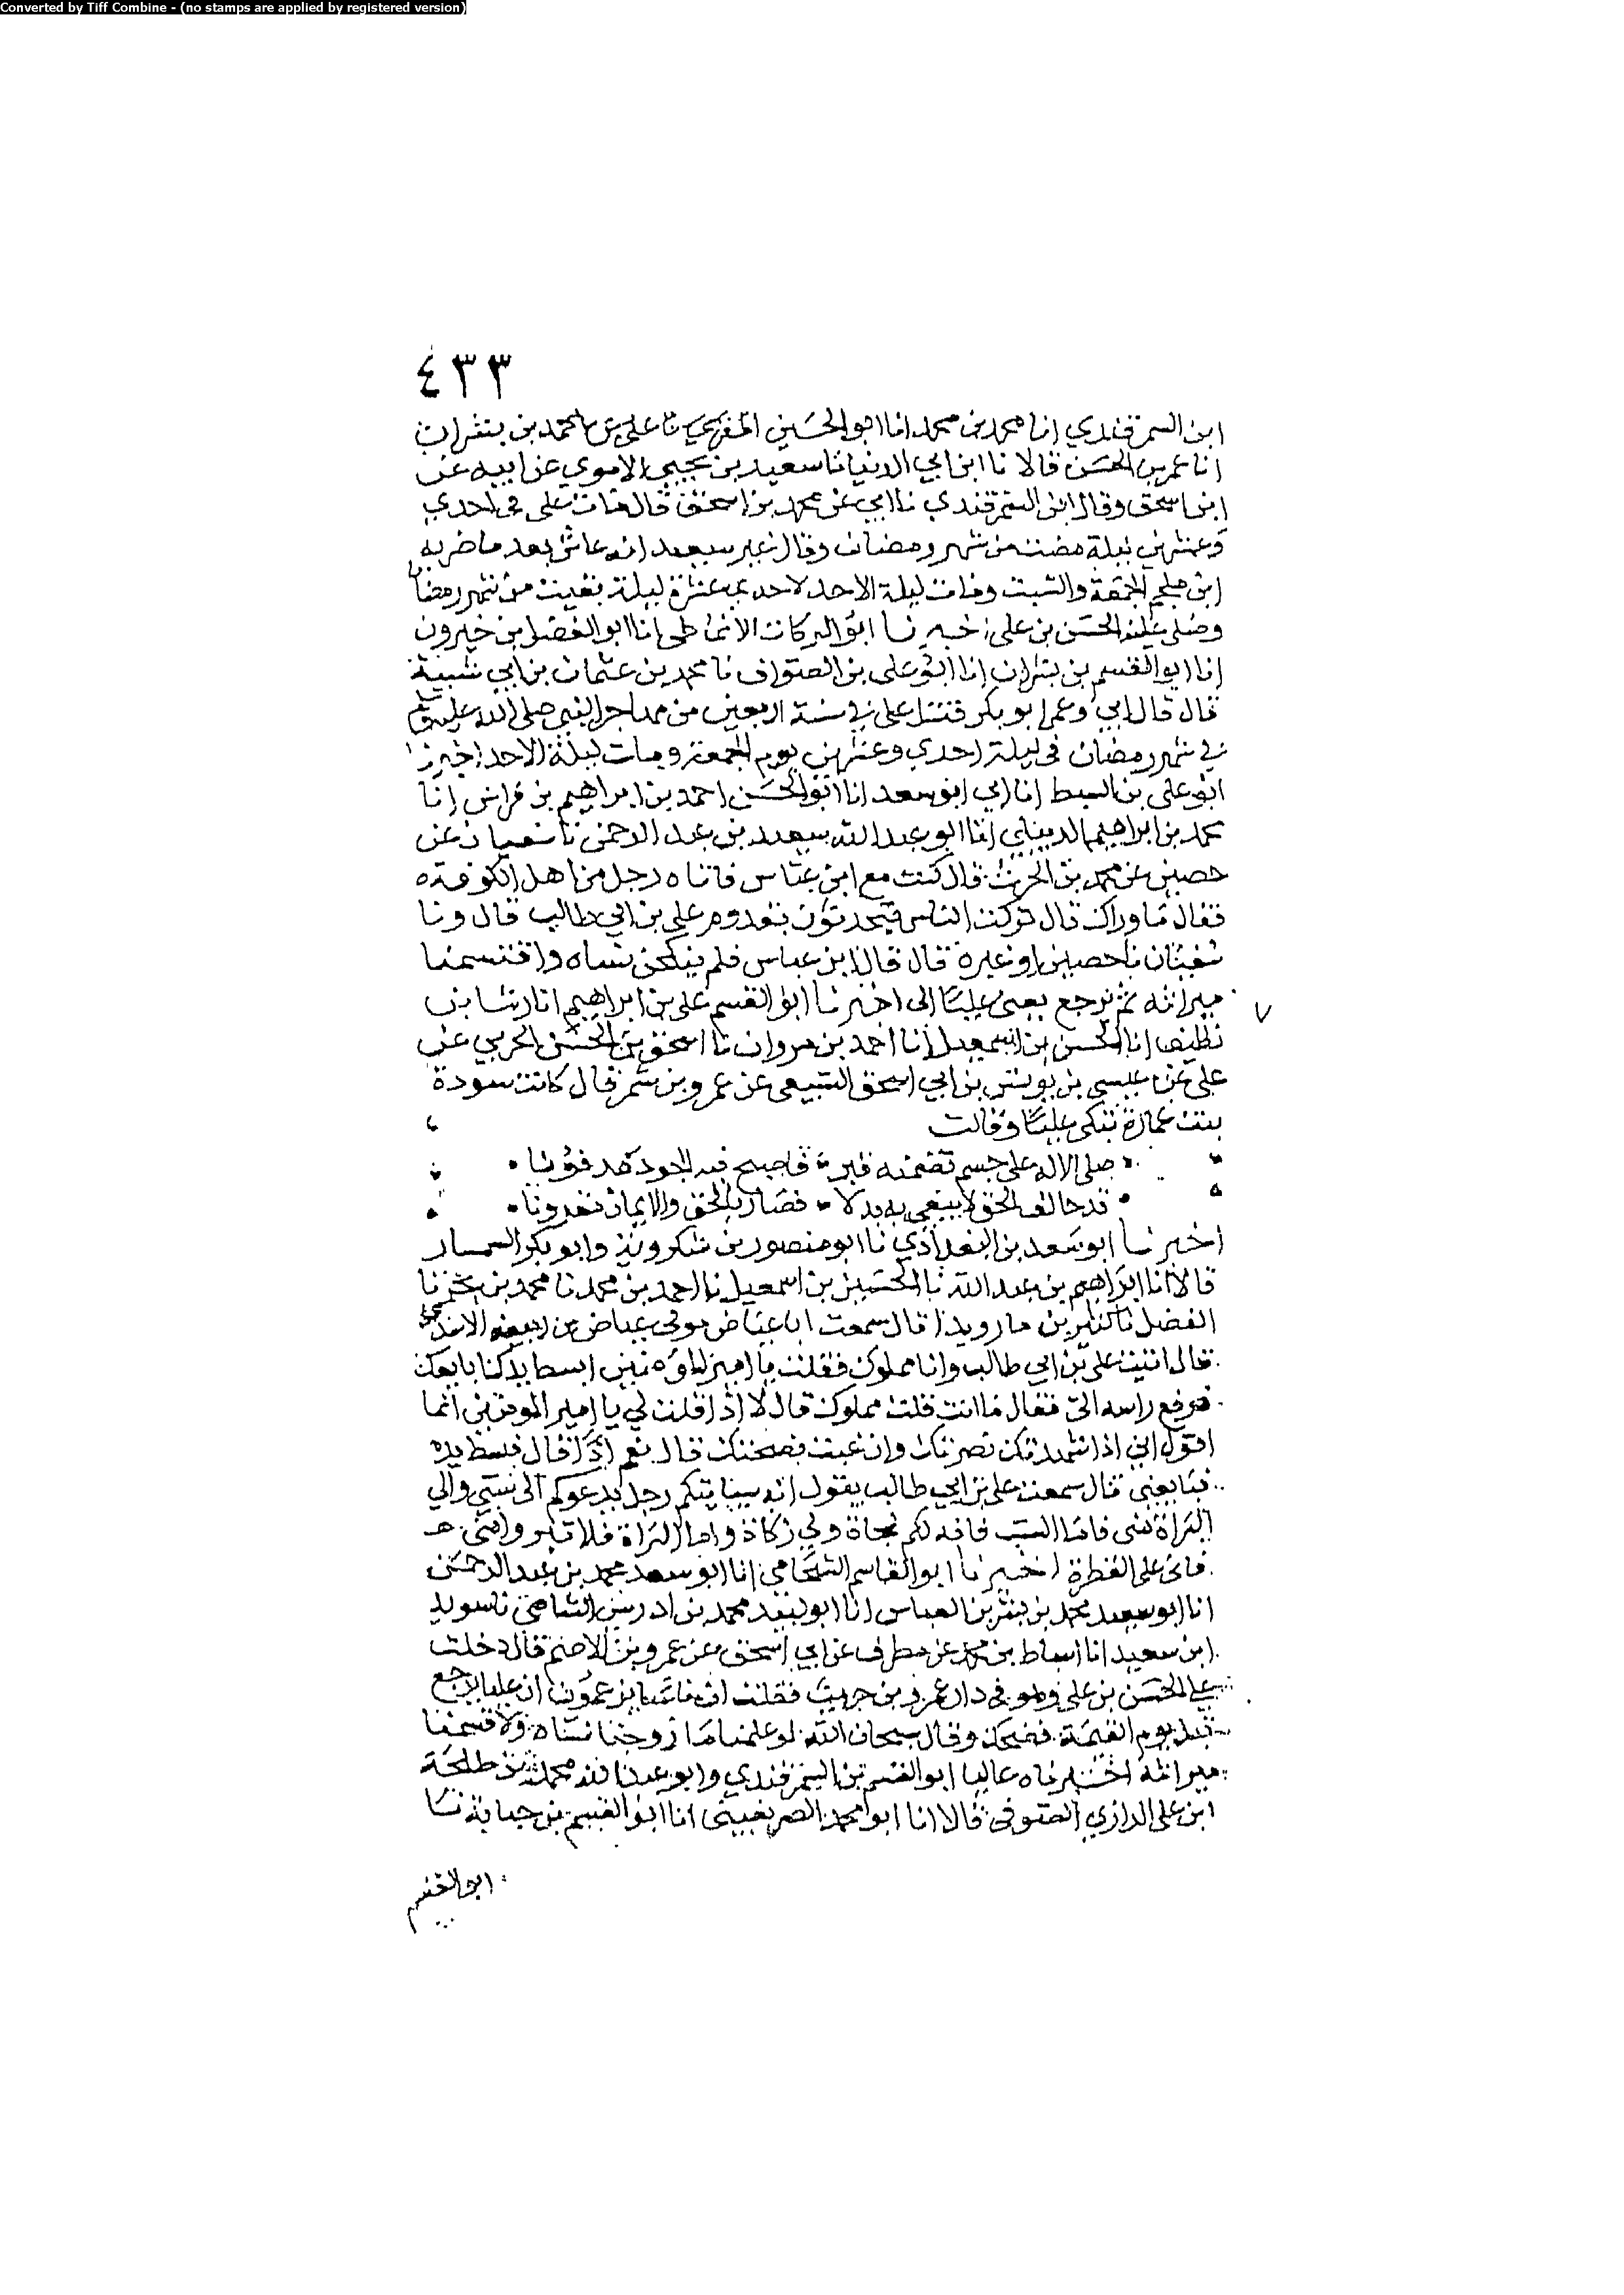 Converted by Tiff Combine - (no stamps are applied by registered version)
٤٣٣
ابن السمرقندي انا محمد بن محمد انا ابو الحسين المقري نا علي بن محمد بن بشران
انا عمر بن الحسن قالا نا ابن ابي الدنيا نا سعيد بن يحيى الاموي عن ابيه عن
ابن اسحق وقال ابن السمرقندي نا ابي عن محمد بن اسحق قال مات علي في احدي
وعشرين ليلة مضت من شهر رمضان وقال غير سعيد انه عاش بعد ما ضربه
ابن ملجم الجمعة والسبت ومات ليلة الاحد لاحدي عشرة ليلة بقيت من شهر رمضان
وصلى عليه الحسن بن علي اخبرنا ابو البركات الانماطي انا ابو الفضل بن خيرون
انا ابو القسم بن بشران انا ابو علي بن الصواف نا محمد بن عثمان بن ابي شيبة
قال قال ابي وعمي ابو بكر قتل علي في سنة اربعين من مهاجر النبي صلى الله عليه وسلم
في شهر رمضان في ليلة احدي وعشرين يوم الجمعة ومات ليلة الاحد اخبرنا
ابو علي بن السبط انا ابي ابو سعد انا ابو الحسن احمد بن ابراهيم بن فراس انا
محمد بن ابراهيم الديبلي انا ابو عبد الله سعيد بن عبد الرحمن نا سفيان عن
حصين عن محمد بن الحرث قال كنت مع ابن عباس فاتاه رجل من اهل الكوفة
فقال ما وراك قال تركت الناس يتحدثون بقدوم علي بن ابي طالب قال ونا
سفيان نا حصين او غيره قال قال ابن عباس فلم ينكحن نساه واقتسمنا
ميراثه ثم يرجع يعني عليا الى اخبرنا ابو القسم علي بن ابراهيم انا رشا بن
نظيف انا الحسن بن اسمعيل انا احمد بن مروان نا اسحق بن الحسن الحربي عن
علي عن عيسى بن يونس بن ابي اسحق السبيعي عن عمرو بن شمر قال كانت سودة
بنت عمارة تبكي عليا وقالت
صلى الاله على جسم تضمنه قبر فاصبح فيه الجود مدفونا
قد حالف الحق لا يبغي به بدلا فصار بالحق والايمان مقرونا
اخبرنا ابو سعد بن البغدادي نا ابو منصور بن شكرويه وابو بكر السمسار
قالا انا ابراهيم بن عبد الله نا الحسين بن اسمعيل نا احمد بن محمد نا محمد بن
الفضل نا كثير بن قال سمعت ابا عياض مولى عياض بن ربيعة الاسدي
قال اتيت علي بن ابي طالب وانا مملوك فقلت يا امير المومنين ابسط يدك ابايعك
فرفع راسه الي فقال ما انت قلت مملوك قال لا اذا قلت لي يا امير المومنين انما
اقول اني اذا شهدتك نصرتك وان غبت نصحتك قال نعم اذا قال فبسط يده
فبايعني قال سمعت علي بن ابي طالب يقول انه سياتيكم رجل يدعوكم الى سبي والي
البراة مني فاما السب فانه لكم نجاة ولي زكاة واما البراة فلا تبروا مني
فاني على الفطرة اخبرنا ابو القاسم الشحامي انا ابو سعد محمد بن عبد الرحمن
انا ابو سعيد محمد بن بشر بن العباس انا ابو لبيد محمد بن ادريس الشامي نا سويد
ابن سعيد انا اسباط بن محمد عن مطرف عن ابي اسحق عن عمرو بن الاصم قال دخلت
على الحسن بن علي وهو في دار عمرو بن حريث فقلت ان ناسا يزعمون ان عليا يرجع
قبل يوم القيمة فضحك وقال سبحان الله لو علمنا ما زوجنا نساه ولا قسمنا
ميراثه اخبرناه عاليا ابو القسم بن السمرقندي وابو عبد الله محمد بن طلحة
ابن علي الرازي الصوفي قالا انا ابو محمد الصريفيني انا ابو القسم بن حبابة نا
ابو القسم